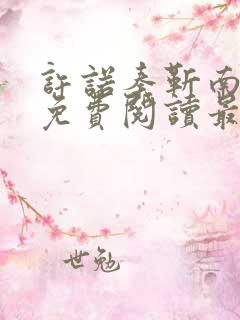 許諾秦靳南
免費閱讀最
世勉